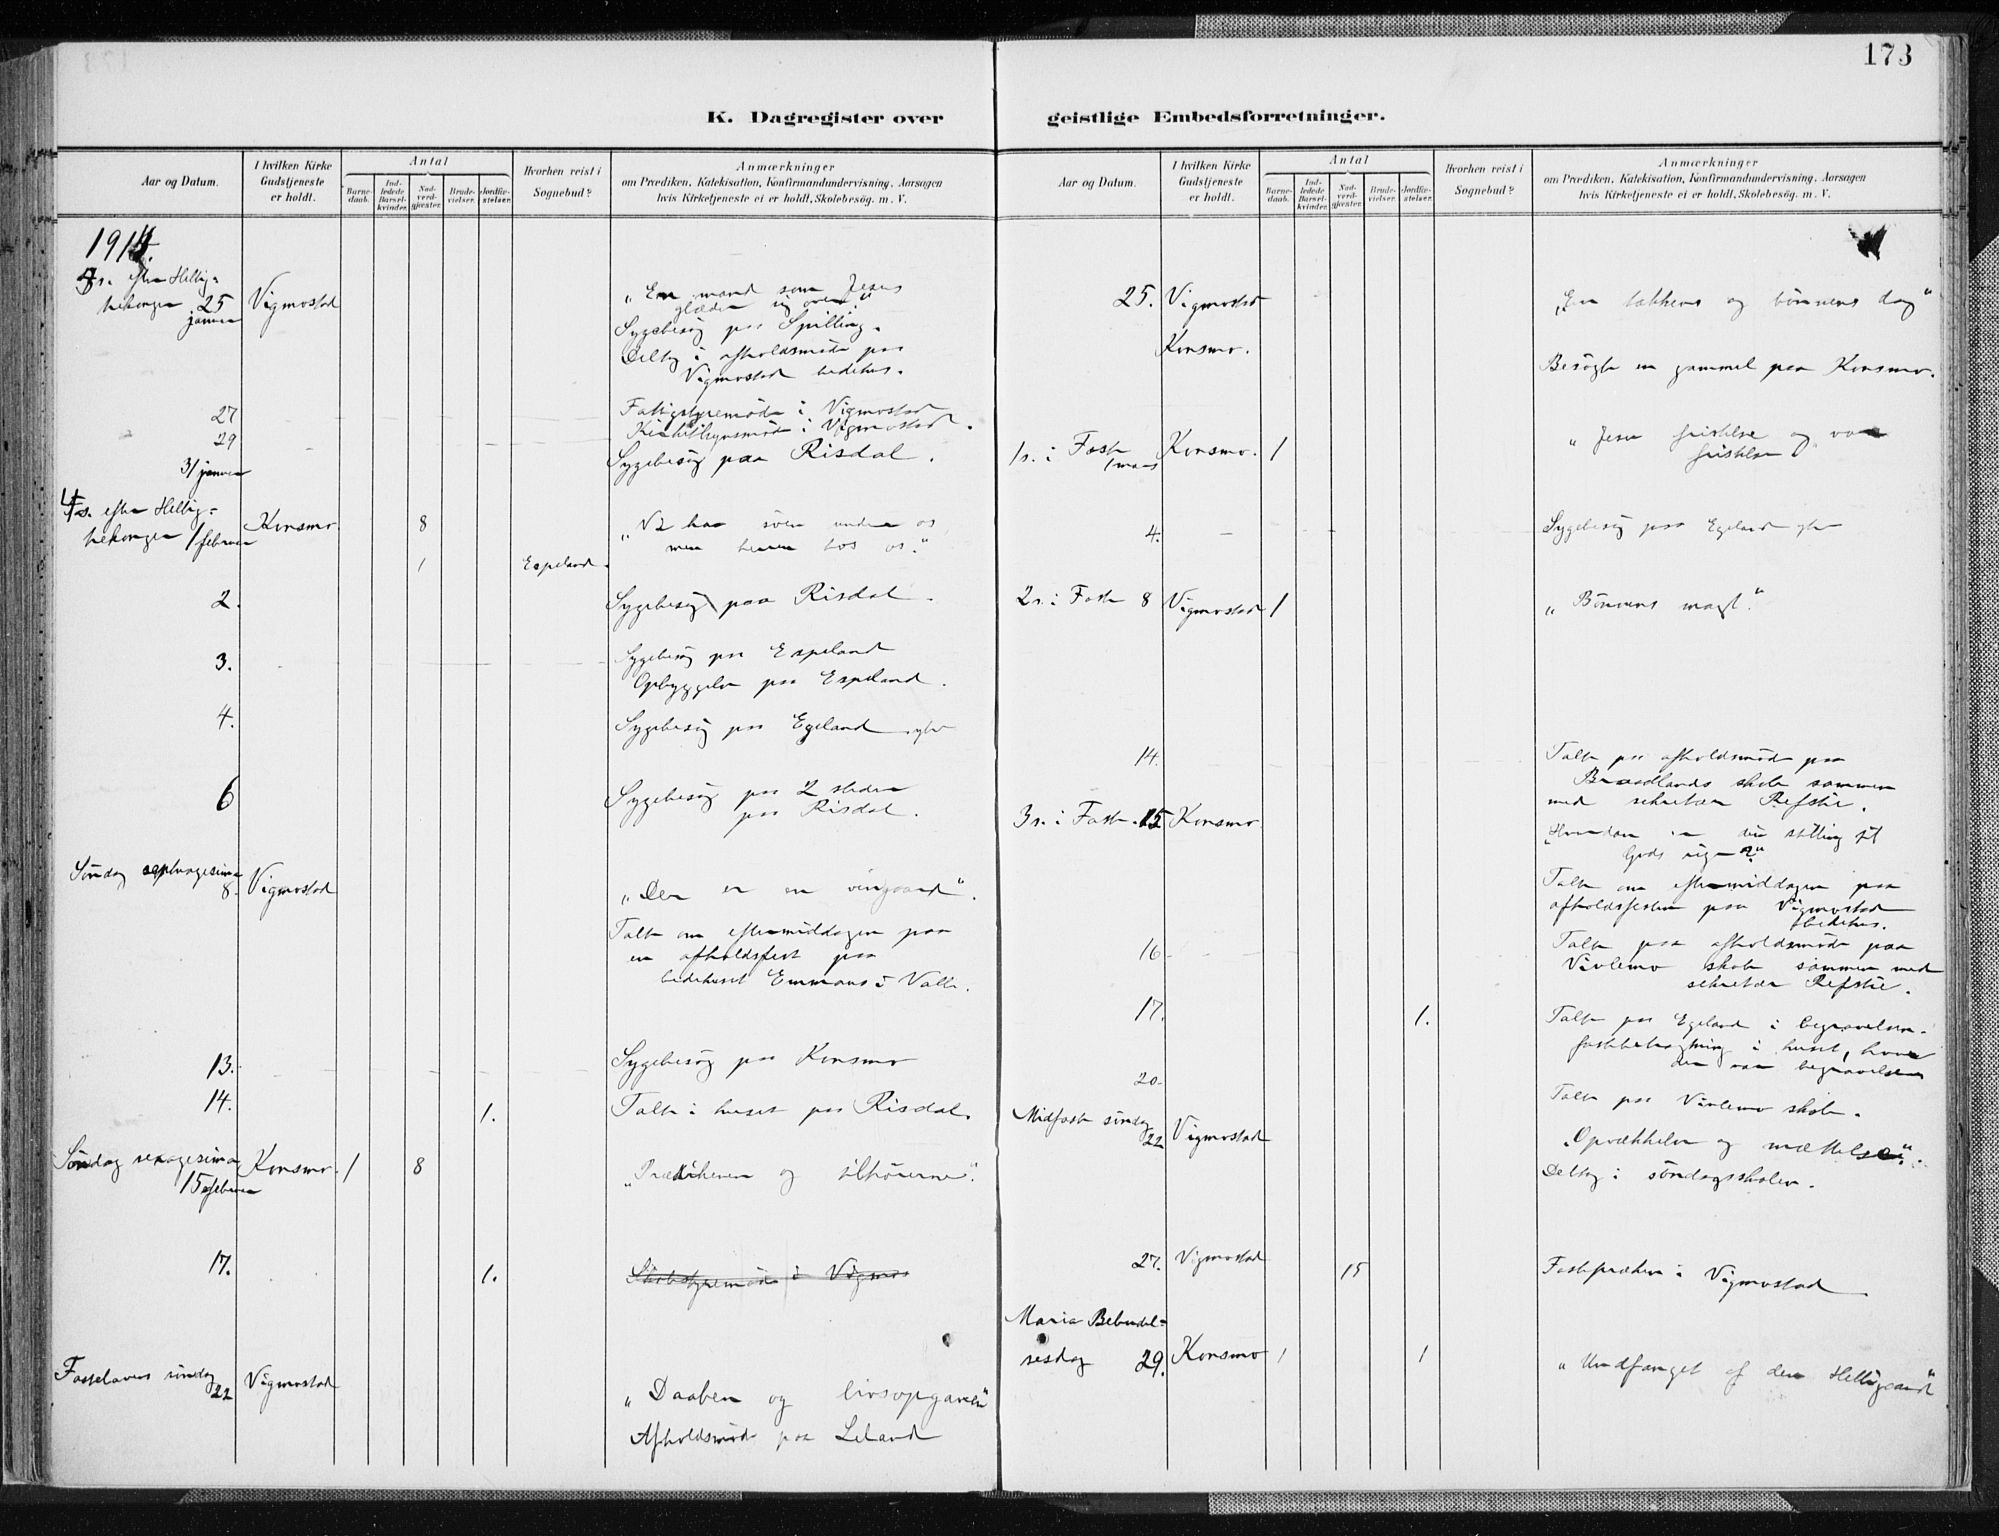 173
K. Dagregister over geistlige Embedsforretninger.
Aar og Datum.
I hvilken Kirke
Gudstjeneste
er holdt.
Antal
Barne-
daab.
Ind-
ledede
Barsel-
kvinder.
Nad-
verd-
gjester.
Brude-
vielser.
Jordfæ-
stelser.
Hvorhen reist i
Sognebud?
Anmærkninger
om Prædiken, Katekisation, Konfirmandundervisning, Aarsagen
hvis Kirketjeneste ei er holdt, Skolebesøg. m. V.
1914.
s. efter Hellig-
25 Vigmostad
januar
„En mand som Jesus
glæder sig over."
Sygebesøg paa Spilling.
Deltog i afholdsmøde paa
Vigmostad bedehus.
27
Fattigstyremøde i Vigmostad
29
Kirketilsynsmøde i Vigmostad.
31 januar
Sygebesøg paa Risdal.
4 s. efter Hellig-
1 februar Konsmo 8
men herren hos os."
1 Espeland.
2.
Sygebesøg paa Risdal.
3.
Sygebesøg paa Espeland
Opbyggelse paa Espeland.
4.
Sygebesøg paa Egeland ytre
6
Sygebesøg paa 2 steder
paa Risdal.
Søndag septuagesima
8. Vigmostad
„Den er en vingaard".
Talte om eftermiddagen paa
en afholdsfest paa
bedehuset Emmaus i Valle.
13.
Sygebesøg paa Konsmo
14. 1.
Talte i huset paa Risdal.
Søndag sexagesima Konsmo. 1 8
15 februar
„Prædikenen og tilhørerne".
17. 1.
Skolestyremøde i Vigmos
Fastelavens søndag
22 Vigmostad
„Daaben og livsopgaven"
Afholdsmøde paa Leland
Aar og Datum.
I hvilken Kirke
Gudstjeneste
er holdt.
Antal
Barne-
daab.
Ind-
ledede
Barsel-
kvinder.
Nad-
verd-
gjester.
Brude-
vielser.
Jordfæ-
stelser.
Hvorhen reist i
Sognebud?
Anmærkninger
om Prædiken, Katekisation, Konfirmandundervisning, Aarsagen
hvis Kirketjeneste ei er holdt, Skolebesøg. m. V.
25. Vigmostad
„En takkens og bønnens dag"
Konsmo.
Besøgte en gammel paa Konsmo.
1 s. i Faste
1 mars Konsmo. 1
„Jesu fristelse og vor
fristelse"
4.
Sygebesøg paa Egeland ytre
2 s. i Faste 8 Vigmostad 1
„Bønnens magt."
14.
Talte paa afholdsmøde paa
Braadlands skole sammen
med sekretær Refstie.
3 s. i Faste. 15 Konsmo
„Hvordan er din stilling til
Guds rige?"
Talte om eftermiddagen paa
afholdsfesten paa Vigmostad
bedehus.
16
Talte paa afholdsmøde paa
Vivlemo skole sammen med
sekretær Refstie.
17. 1.
Talte paa Egeland i begravelsen.
20.
fastebetragtning i huset, hvor
der var begravelsen
Talte paa Vivlemo skole.
Midfaste søndag
22 Vigmostad
„Opvækkelse og mættelse".
Deltog i søndagsskolen.
27. Vigmostad 15
Fasteprædken i Vigmostad
Maria Bebudel-
sesdag 29. Konsmo 1 1
„Undfanget af den Helligaand"